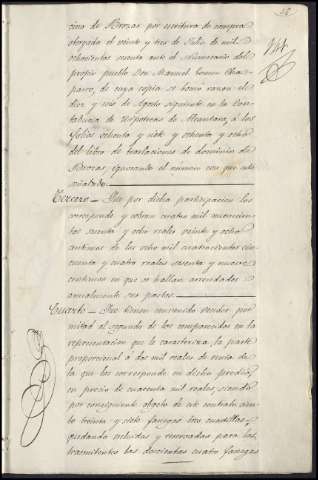 cina de Brozas por escritura de compra
otorgada el veinte y tres de Julio de mil
ochocientos sesenta ante el Notario del
propio pueblo Don Manuel Tomas Cha-
parro, de cuya copia se tomó razon el
diez y seis de Agosto siguiente en la Con-
taduria de Hipotecas de Alcantara, á los
folios ochenta y siete y ochenta y ocho
del libro de traslaciones de dominio de
Brozas, ignorando el número con que está
señalado.
Tercero — Que por dicha participacion les
corresponde y cobran cuatro mil novecien-
tos sesenta y ocho reales veinte y ocho
centimos de los ocho mil cuatrocientos cin-
cuenta y cuatro reales sesenta y nueve
centimos en que se hallan arrendados
anualmente sus pastos.
Cuarto — Que tienen convenido vender por
mitad al segundo de los comparecidos en la
representacion que le caracteriza, la parte
proporcional a dos mil reales de renta de
la que les corresponde en dicho predio,
en precio de cuarenta mil reales, siendo
por consiguiente objeto de este contrato cien-
to treinta y siete fanegas tres cuartillos,
quedando reducidas y reservadas para los
trasmitentes las doscientas cuatro fanegas